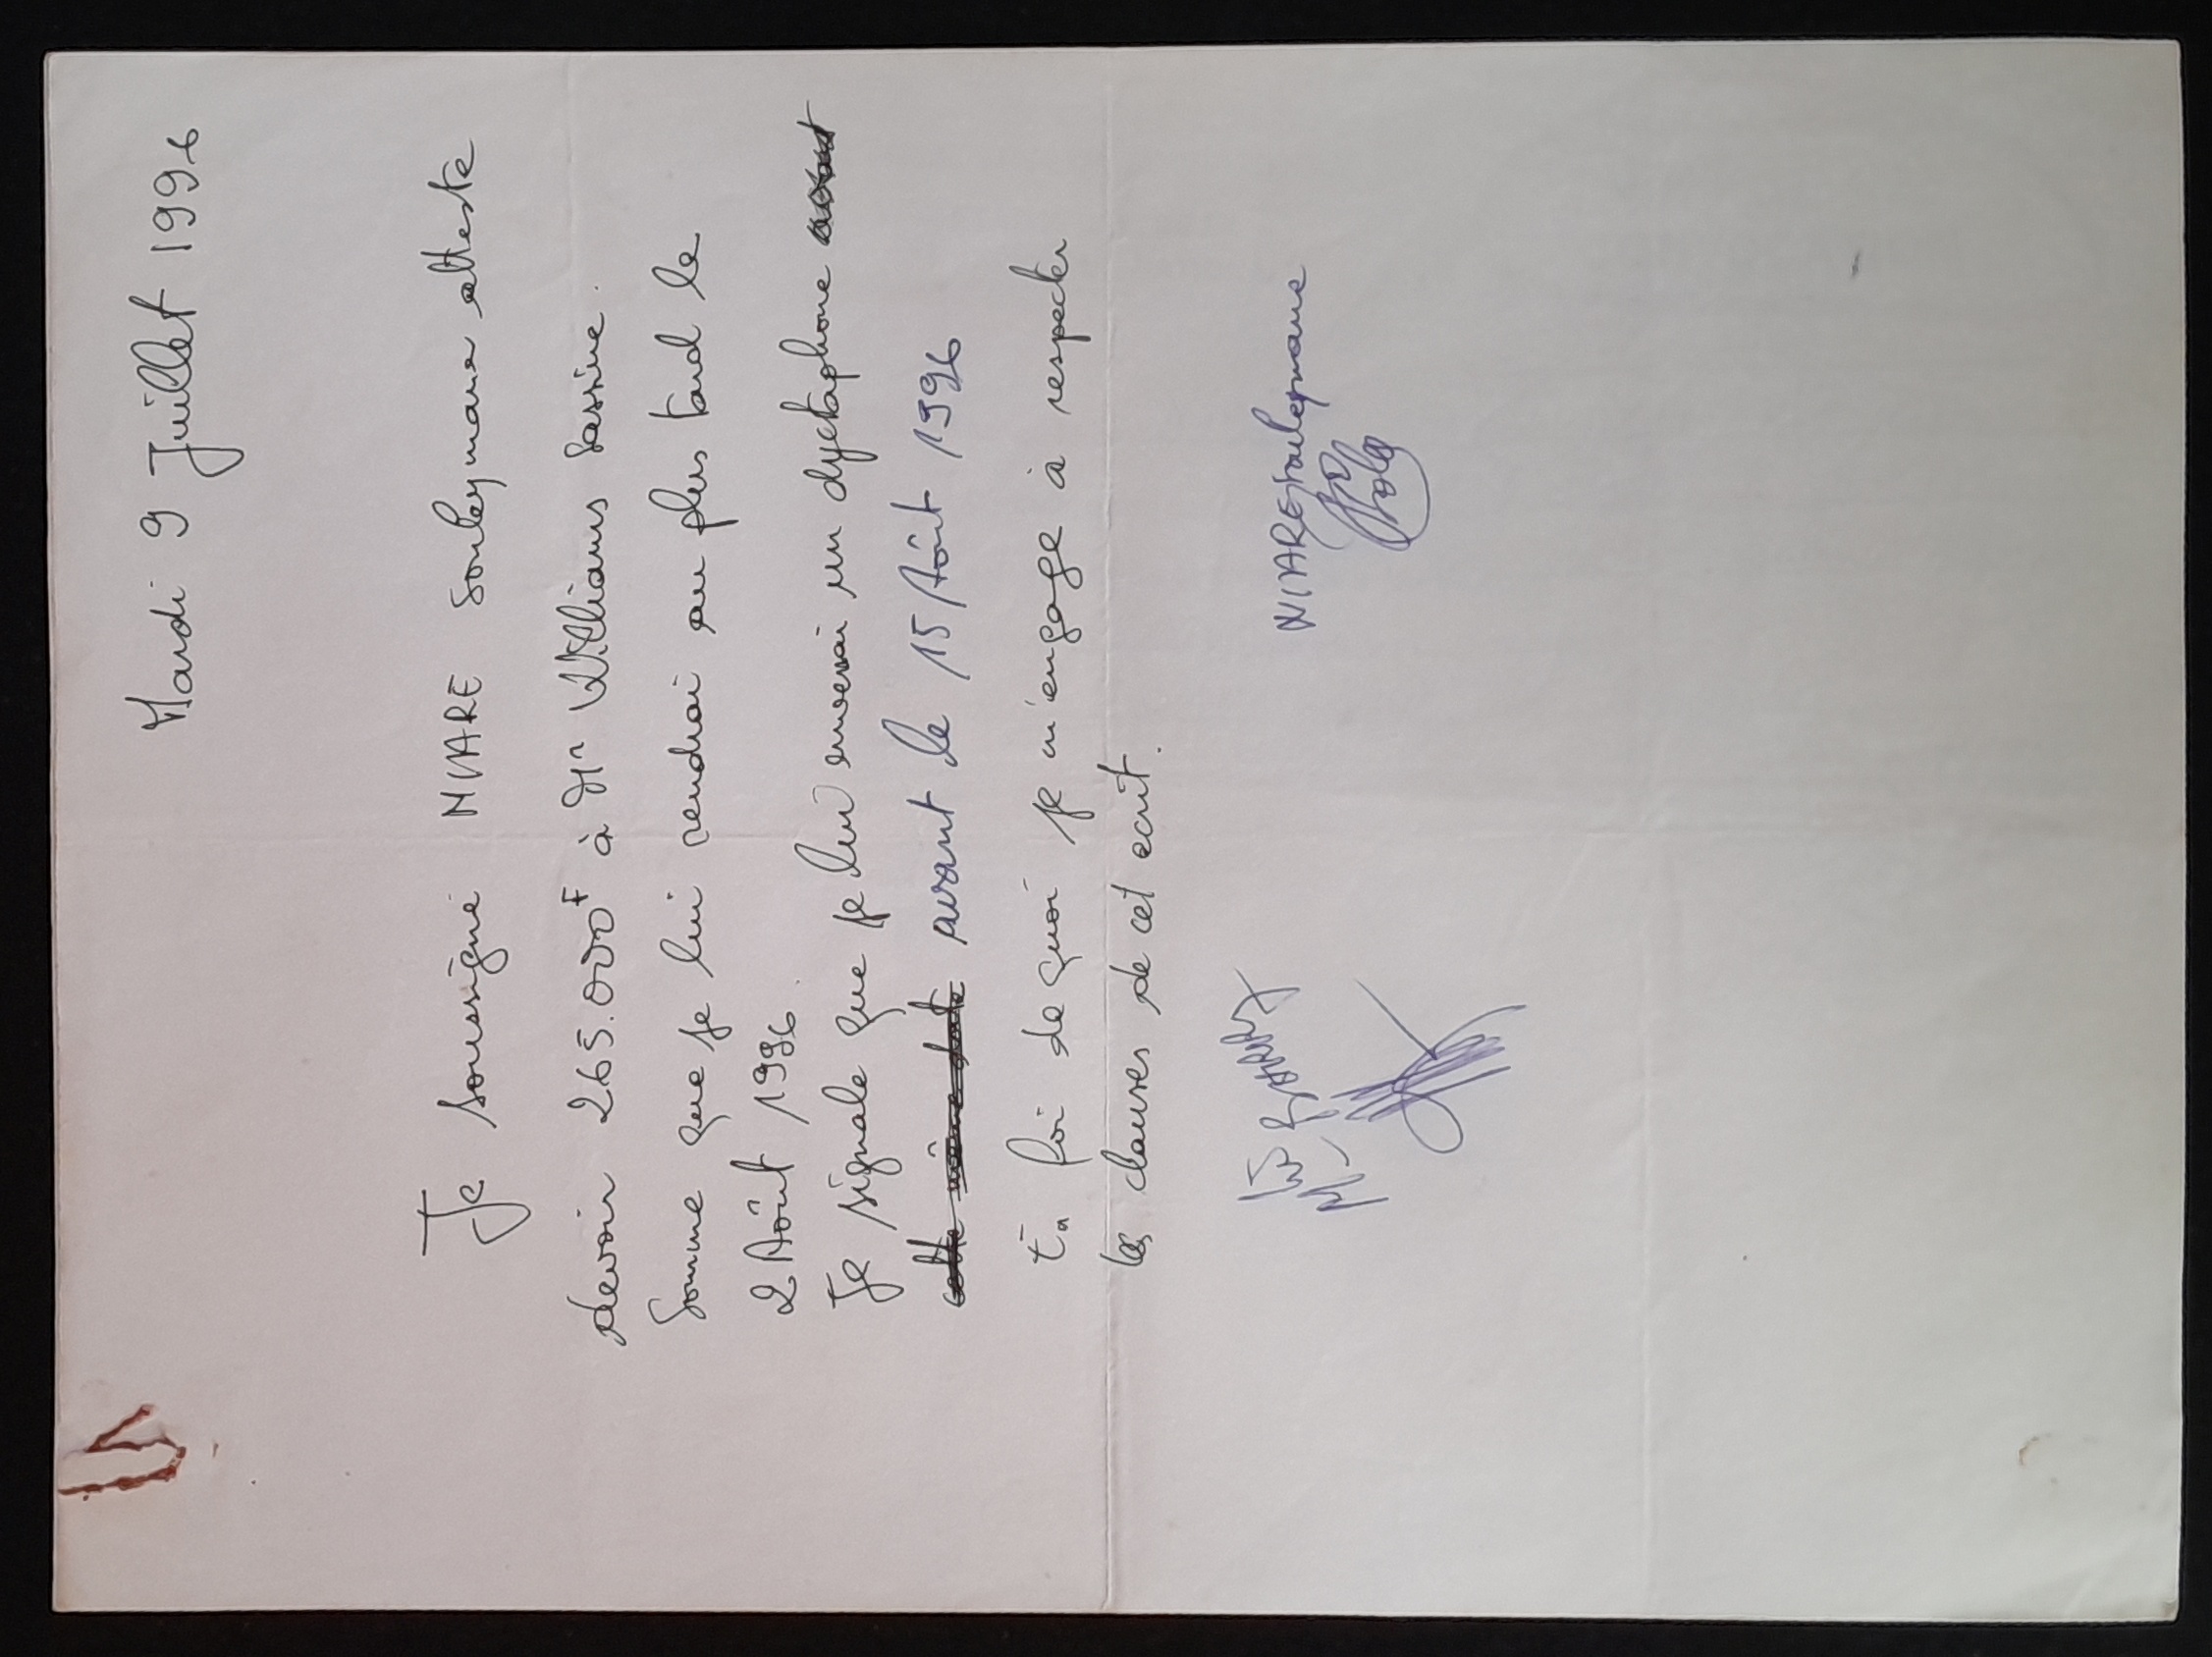 Mardi 9 Juillet 1996
Je soussigné NIARE Souleymane atteste
devoir 265.000F à Mr Williams Sassine.
Somme que je lui rendrai au plus tard le
2 Août 1996.
Je signale que je lui enverrai un dyctaphone avant
cette même date avant le 15 Août 1996
En foi de quoi je m'engage à respecter
les clauses de cet ecrit.
NIARE Souleymane